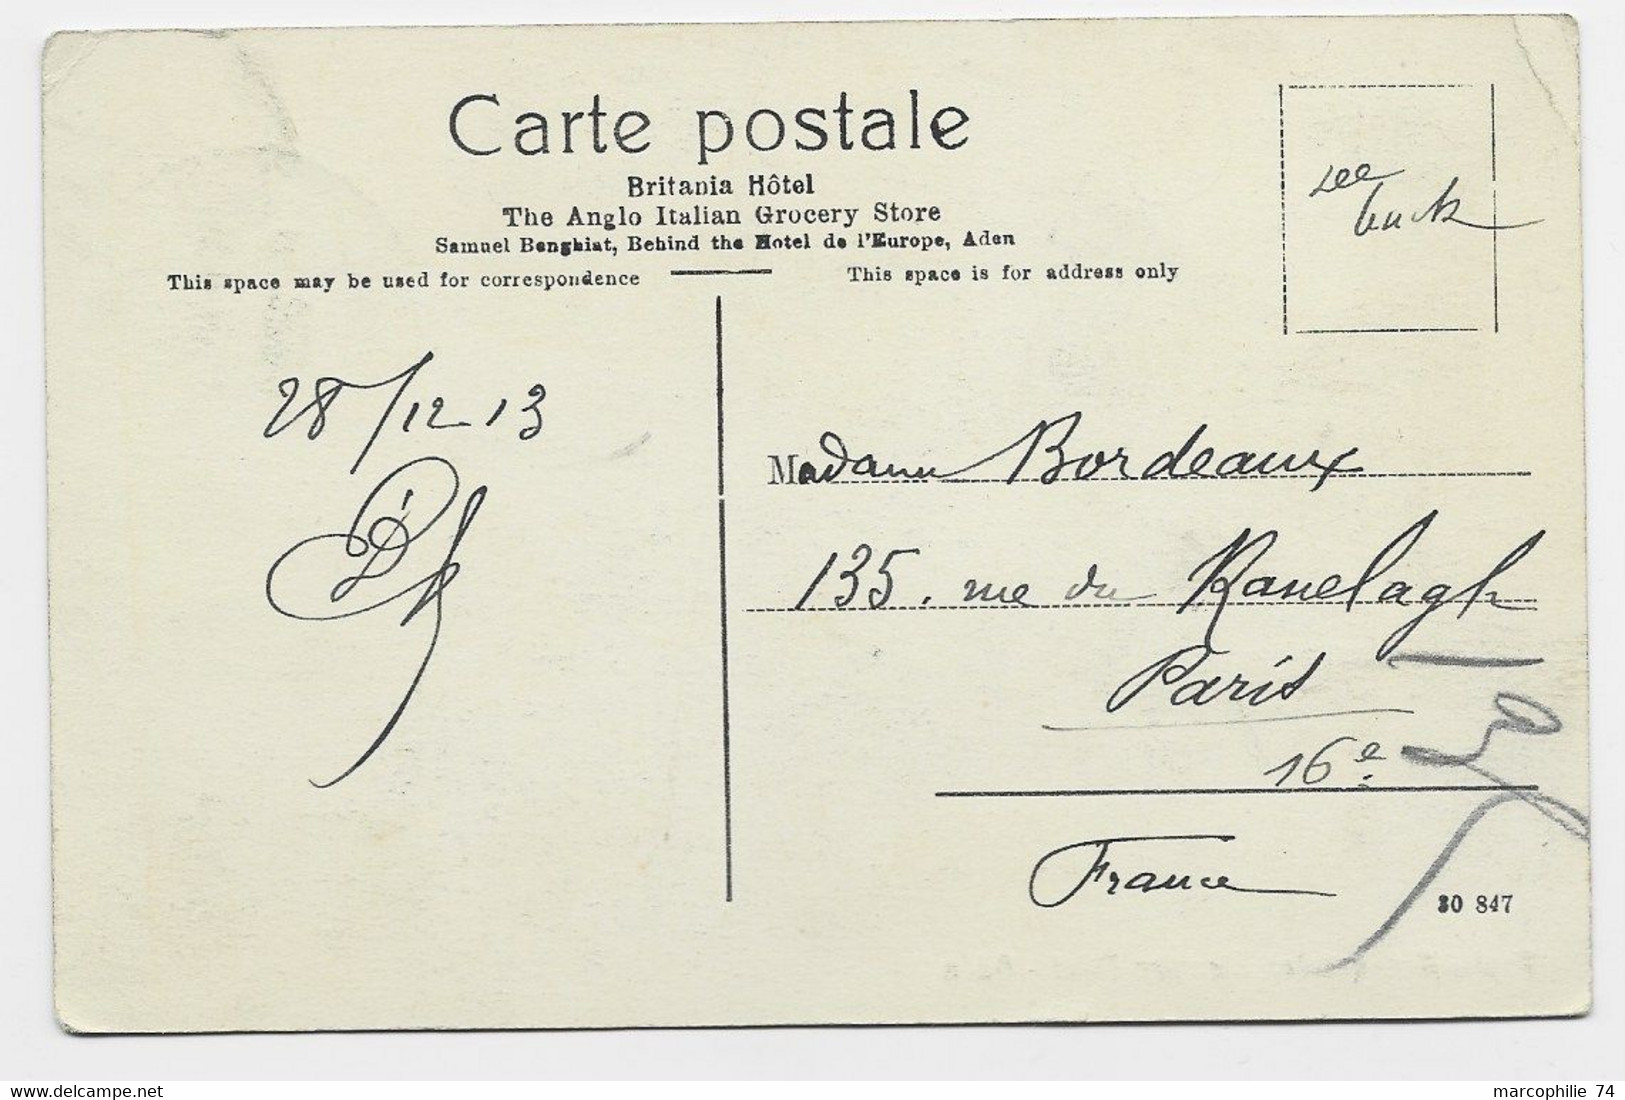 Carte postale
Britania Hôtel
The Anglo Italian Grocery Store
Samuel Benghiat, Behind the Hotel de l'Europe, Aden
This space may be used for correspondence
This space is for address only
see
back
28/12 13
Madame Bordeaux
135. rue du Ranelagh
Paris
16e
France
30 847
marcophilie 74